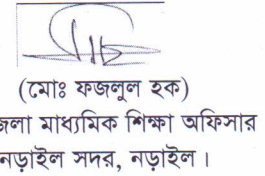 (মোঃ ফজলুল হক)
জলা মাধ্যমিক শিক্ষা অফিসার
নড়াইল সদর, নড়াইল।